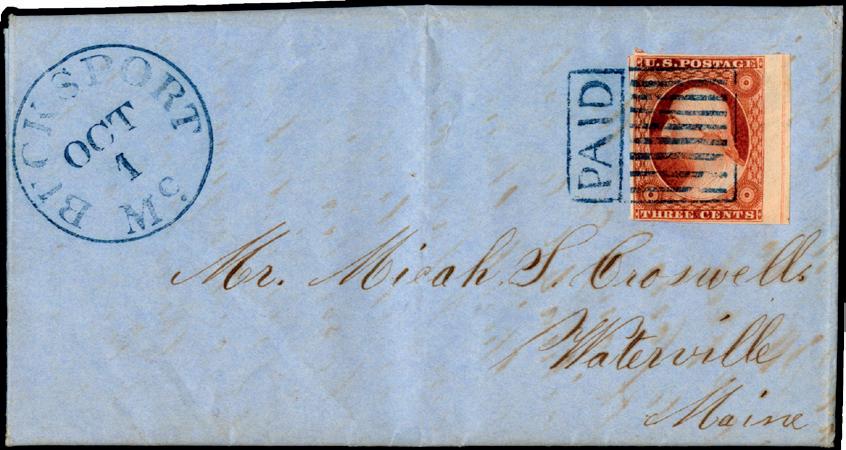 BUCKSPORT Me.
OCT
1
PAID
U.S. POSTAGE
THREE CENTS
Mr. Micah. S. Croswell.
Waterville
Maine